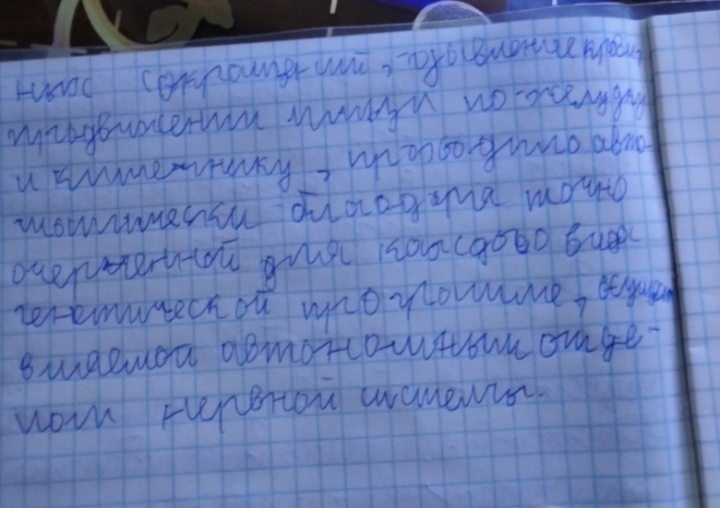 ных сокращений, -одывление крови,
продвижении пищи по желудку
и кишечнику, производило авто-
матически благодаря точно
очерченной для каждого вида
генетической программе, осущест
вляемой автономным отде-
лом нервной системы.